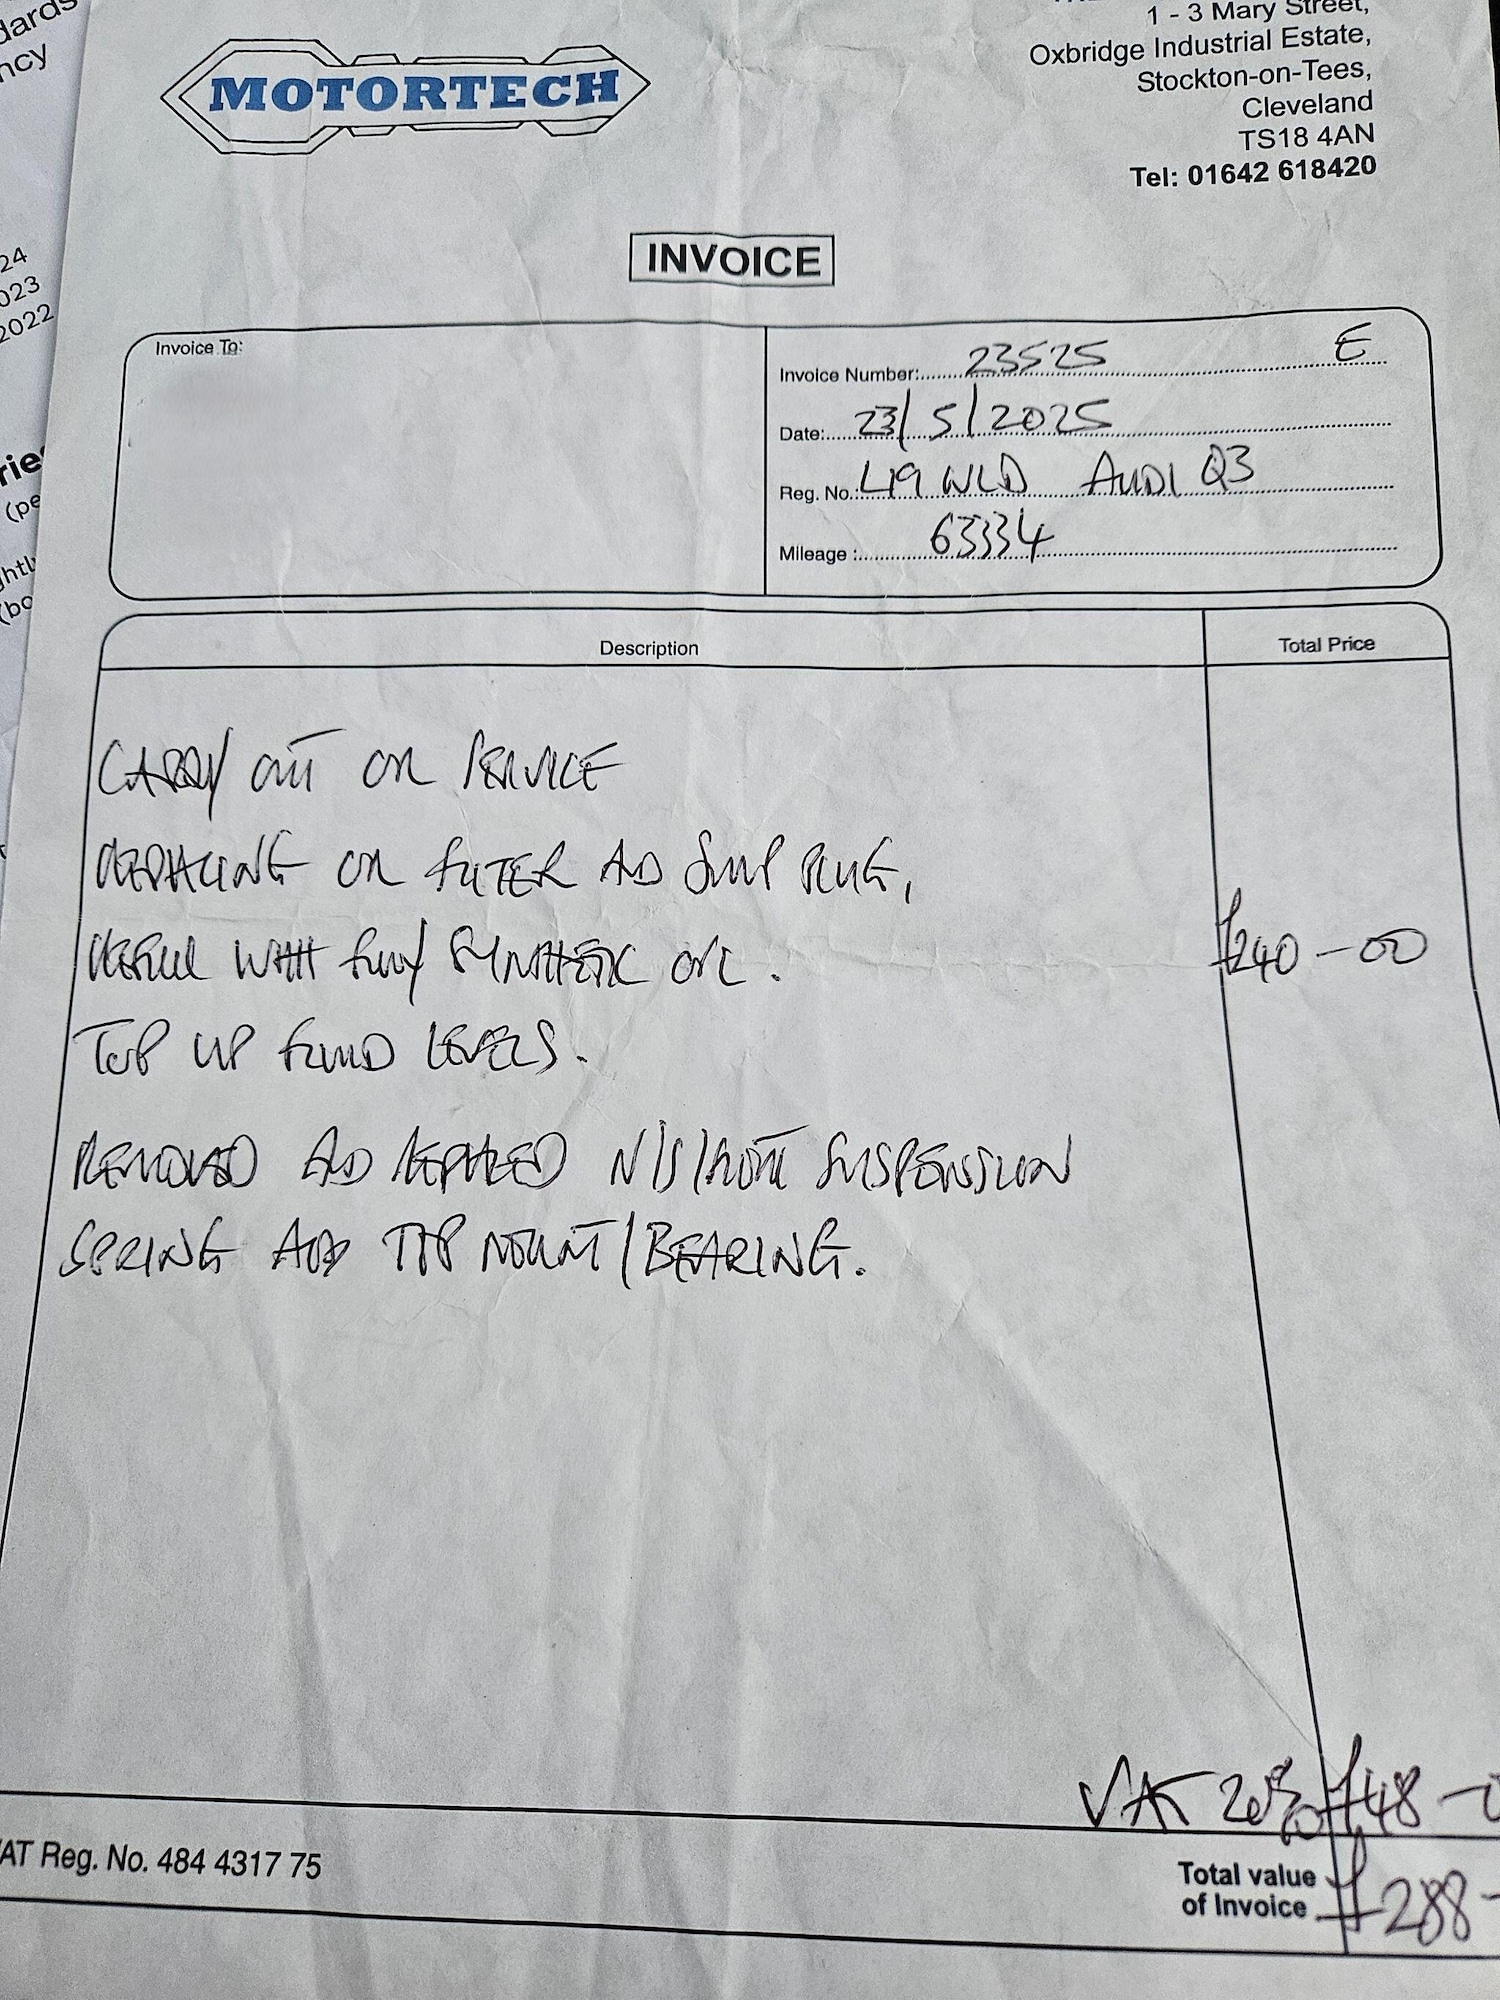 dards
ncy
24
023
2022
rie
(pe
ghtly
(bo
MOTORTECH
1 - 3 Mary Street,
Oxbridge Industrial Estate,
Stockton-on-Tees,
Cleveland
TS18 4AN
Tel: 01642 618420
INVOICE
Invoice To:
Invoice Number: 23525 E
Date: 23/5/2025
Reg. No. L19 WLD AUDI Q3
Mileage : 63334
Description Total Price
CARRY OUT OIL SERVICE
REPLACING OIL FILTER AND SUMP PLUG,
REFILL WITH FULLY SYNTHETIC OIL. £240-00
TOP UP FLUID LEVELS.
REMOVED AND REPLACED N/S/FRONT SUSPENSION
SPRING AND TOP MOUNT/BEARING.
VAT 20% £48-0
AT Reg. No. 484 4317 75
Total value
of Invoice £288-